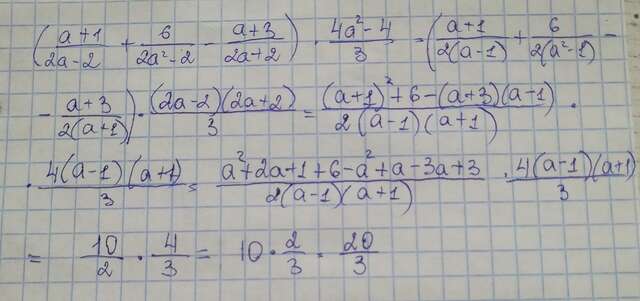 (a+1/2a-2 + 6/2a²-2 - a+3/2a+2) · 4a²-4/3 = (a+1/2(a-1) + 6/2(a²-1) -
- a+3/2(a+1)) · (2a-2)(2a+2)/3 = (a+1)²+6-(a+3)(a-1)/2(a-1)(a+1) ·
· 4(a-1)(a+1)/3 = a²+2a+1+6-a²+a-3a+3/2(a-1)(a+1) · 4(a-1)(a+1)/3
= 10/2 · 4/3 = 10 · 2/3 · 20/3